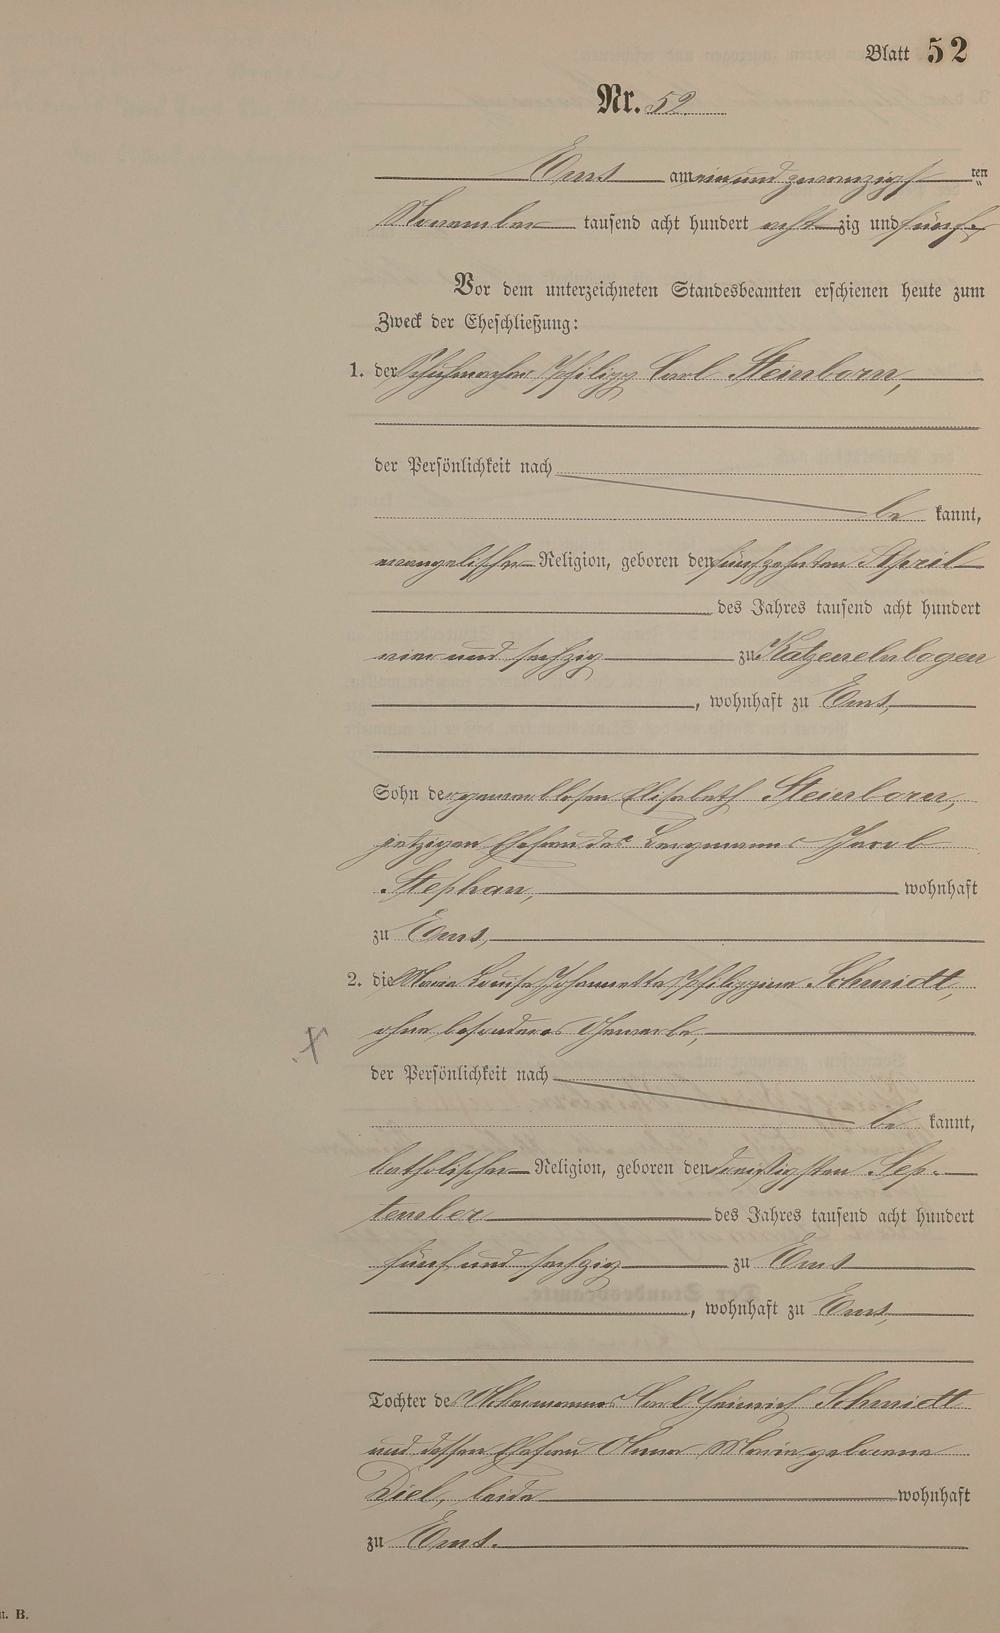 Blatt 52
Nr. 52
Ems am ein und zwanzigsten
November tausend acht hundert acht zig und fünf.
Vor dem unterzeichneten Standesbeamten erschienen heute zum
Zweck der Eheschließung:
1. der Schuhmacher Philipp Carl Steinborn,
der Persönlichkeit nach
be kannt,
evangelischer Religion, geboren den fünfzehnten April
des Jahres tausend acht hundert
vier und sechzig zu Katzenelnbogen
, wohnhaft zu Ems,
Sohn der gewerblosen Elisabeth Steinborn,
jetzigen Ehefrau des Bergmanns Jacob
Stephan, wohnhaft
zu Ems,
2. die Maria Louise Johannette Philippine Schmidt,
ohne besonderes Gewerbe,
der Persönlichkeit nach
be kannt,
katholischer Religion, geboren den dreißigsten Sep-
tember des Jahres tausend acht hundert
fünf und sechzig zu Ems
, wohnhaft zu Ems,
Tochter des Ackermannes Carl Heinrich Schmidt
und dessen Ehefrau Anna Maria geborene
Diel, beide wohnhaft
zu Ems.
B.